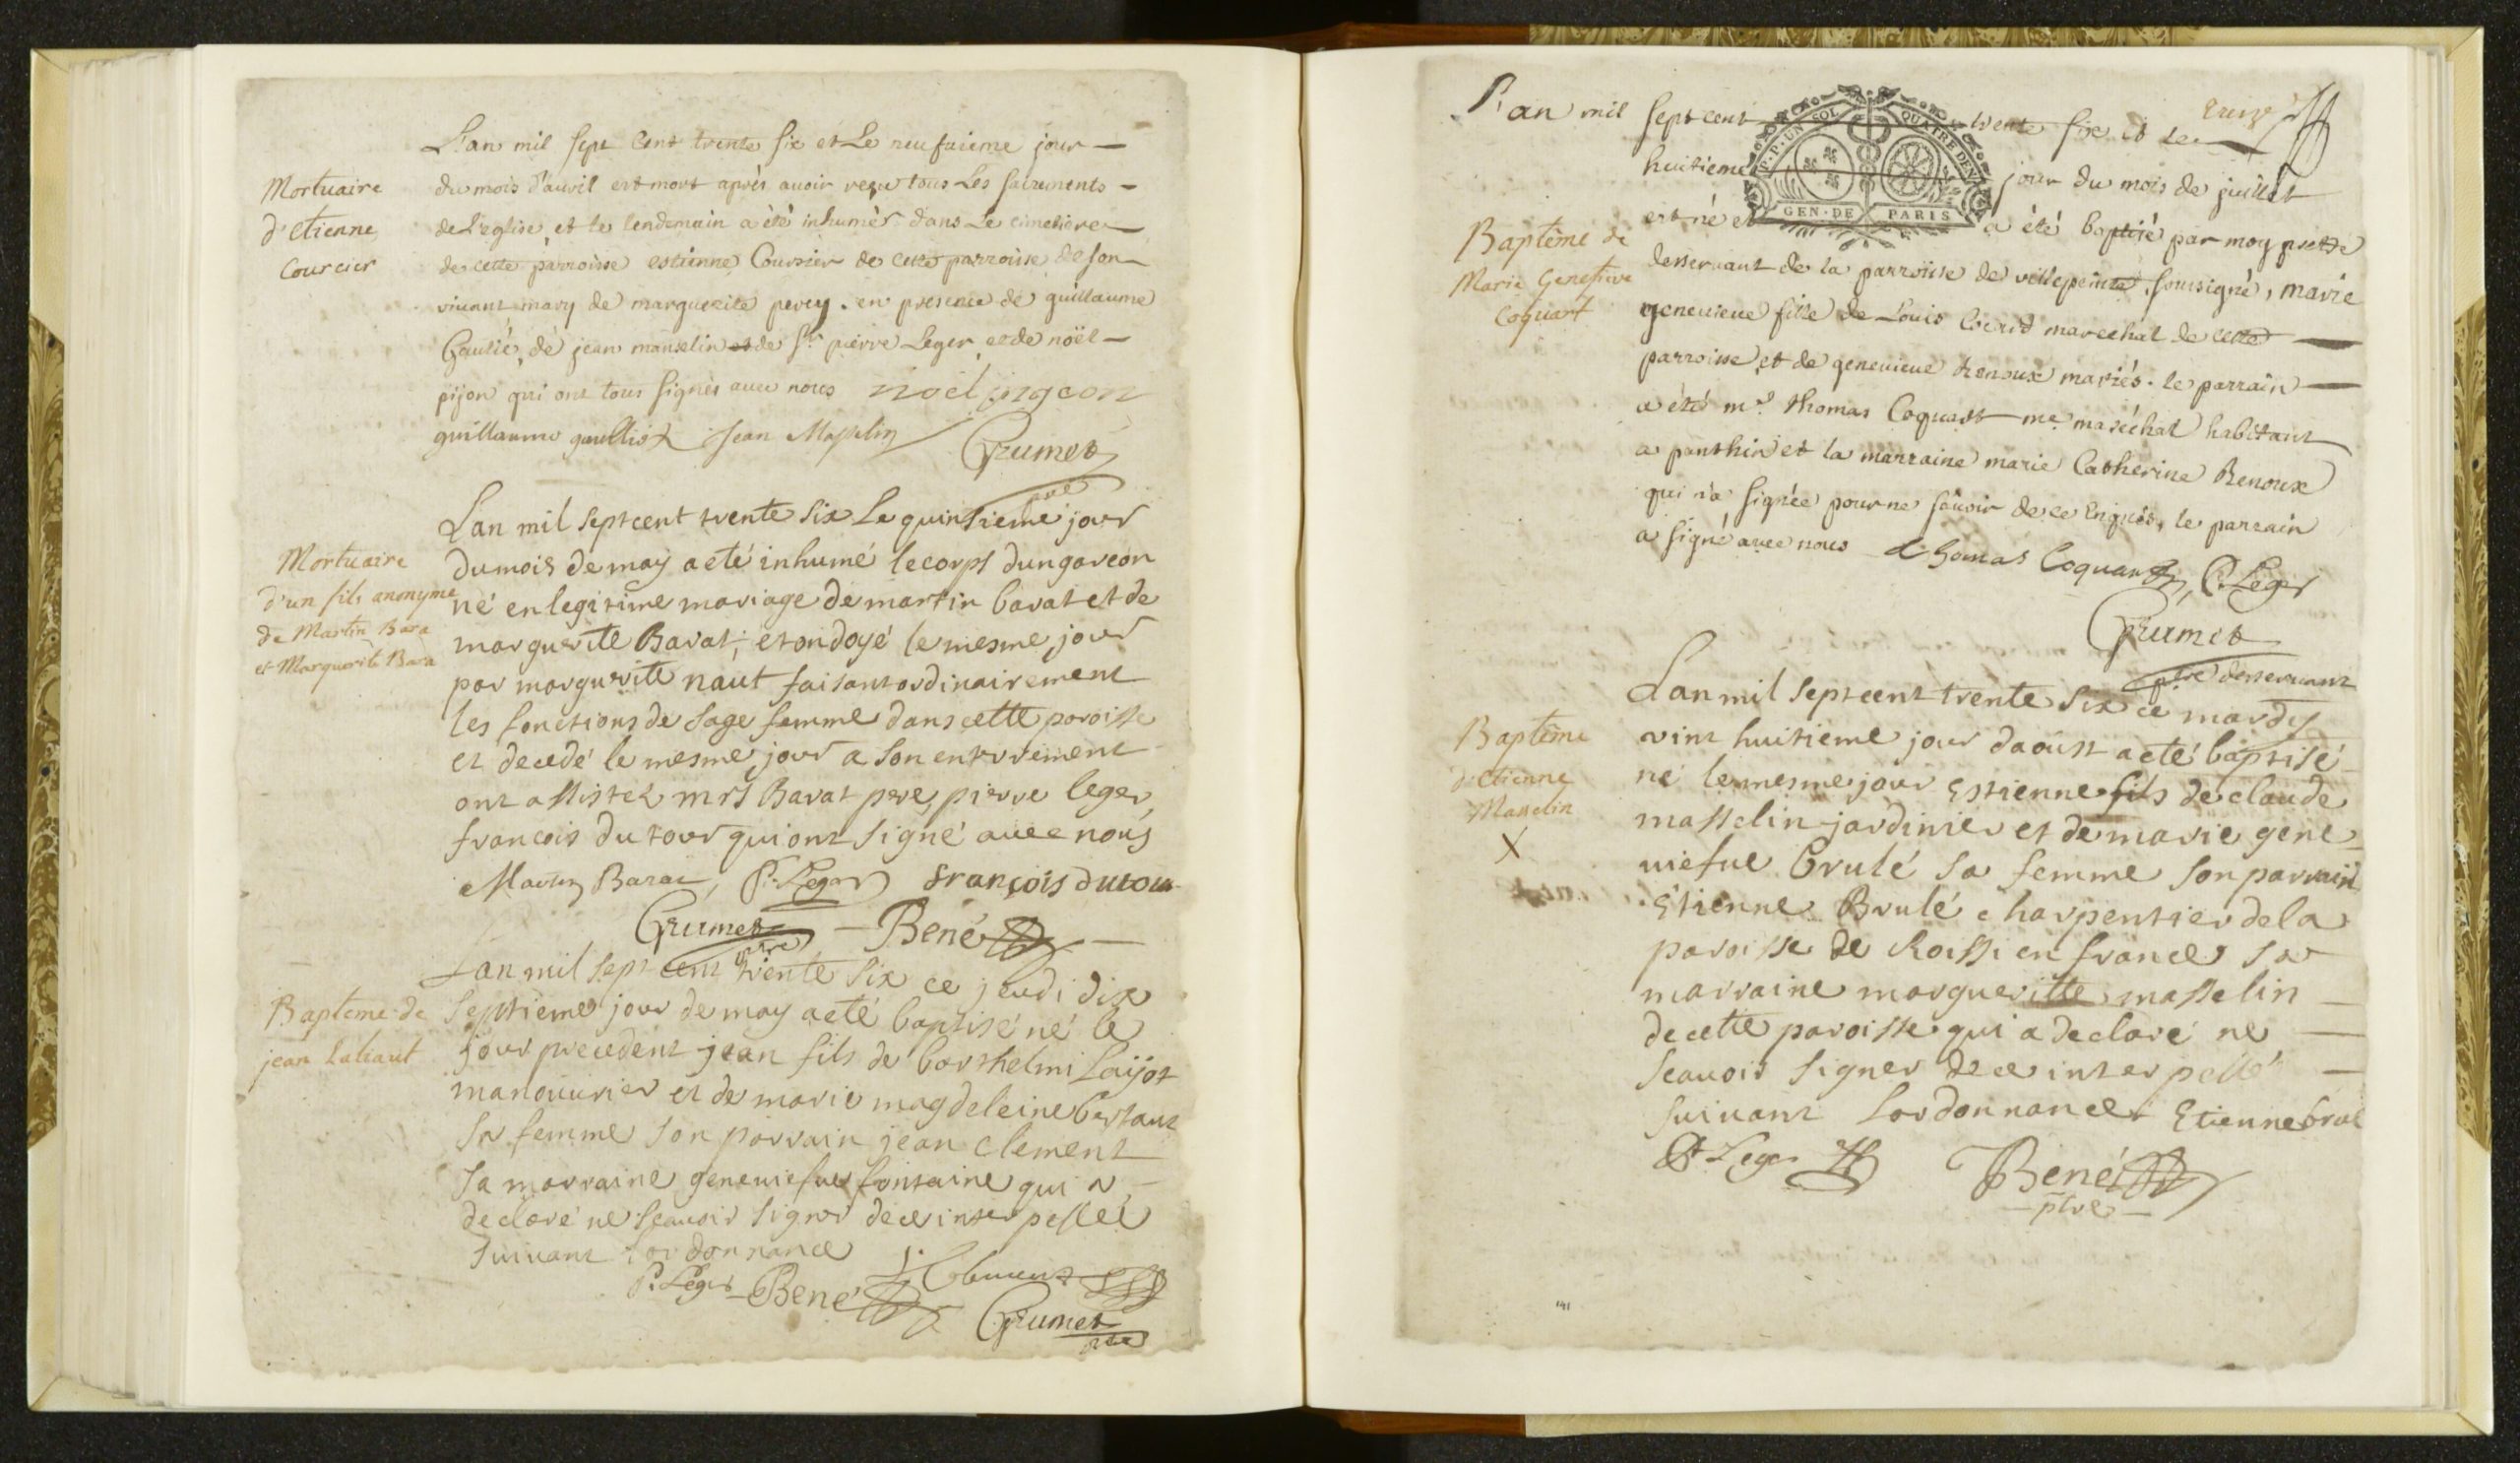 L'an mil sept cent trente six et Le neufuieme jour
Mortuaire
d'etienne
Courcier
du mois d'auvil est mort aprés auoir reçu tous Les sacrements
de L'eglise, et le lendemain a été inhumér dans Le cimetiere
de cette parroisse estienne Coursier de cette parroisse de son
viuant mary de marguerite perey. en presence de guillaume
Gautié, de jean manselin et de Sr. pierre Leger et de noël
pijon qui ont tous signés auec nous noël pigeon
guillaume gaultier Jean Masselin
Grumet
ptre
Mortuaire
d'un fils anonyme
de Martin Bara
et Marguerite Bara
Lan mil septcent trente six le quinsieme jour
du mois de may a eté inhumé le corps dun garcon
né en legitime mariage de martin barat et de
marguerite Barat, et ondoyé le mesme jour
par marguerite naut faisant ordinairement
les fonctions de sage femme dans cette paroisse
et decedé le mesme jour a son enterrement
ont assistez mrs Barat pere, pierre leger,
francois dutour qui ont signé auec nous
Martin Barat, P. Leger françois dutour
Grumet ptre Bené
Baptême de
jean Lahaut
Lan mil sept cent trente six ce jeudi dix
septieme jour de may a eté baptisé né le
jour precedent jean fils de barthelmi Laijot
manouurier et de marie magdeleine bertaut
sa femme son parrain jean clement
sa marraine geneuiefue fontaine qui a
declaré ne scauoir signer de ce interpellée
suiuant lordonnance
P. Leger Bené J. Clement
Grumet
ptre
L'an mil sept cent trente six et le
huitieme jour du mois de juillet
GEN. DE PARIS
QUATRE DEN
UN SOL
Baptême de
Marie Genefieve
Coquart
est né et a été baptisé par moy prettre
desseruant de la parroisse de villepeinte soussigné, marie
geneuieue fille de Louis Cocard marechal de cette
parroisse et de geneuieue Renoux mariés. le parrain
a été me. thomas Coquart me. maréchal habitant
a panthin et la marraine marie Catherine Renoux
qui n'a signée pour ne sauoir de ce enquis, le parrain
a signé auec nous thomas Coquart, P. Leger
Grumet
ptre desseruant
Baptême
d'etienne
Masselin
X
Lan mil septcent trente six ce mardy
vint huitieme jour daoust a eté baptisé
né le mesme jour estienne fils de claude
masselin jardinier et de marie gene
uiefue brulé sa femme son parrain
Etienne Brulé charpentier de la
paroisse de Roissi en france sa
marraine marguerite masselin
de cette paroisse qui a declaré ne
scauoir signer de ce interpellé
suiuant lordonnance Etienne brul
P. Leger Bené
ptre